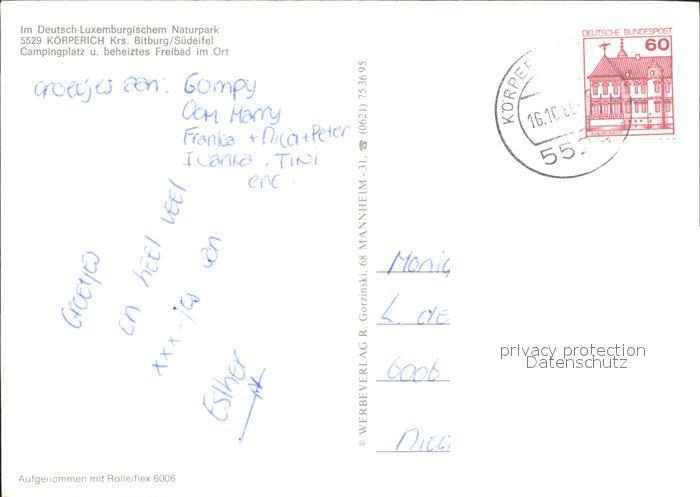 Im Deutsch-Luxemburgischem Naturpark
5529 KÖRPERICH Krs. Bitburg/Südeifel
Campingplatz u. beheiztes Freibad im Ort
DEUTSCHE BUNDESPOST
60
KÖRPER
16.10.8
552
Groetjes aan: Gompy
Oom Harry
Franka + Nica + Peter
Ivanka, TiNi
enc.
Groetjes
en heel veel
xxx-jes van
Esther
© WERBEVERLAG R. Gorzinski, 68 MANNHEIM - 31, ☎ (0621) 75 26 95
Moniq
L. de
6006
Nied
privacy protection
Datenschutz
Aufgenommen mit Rolleiflex 6006